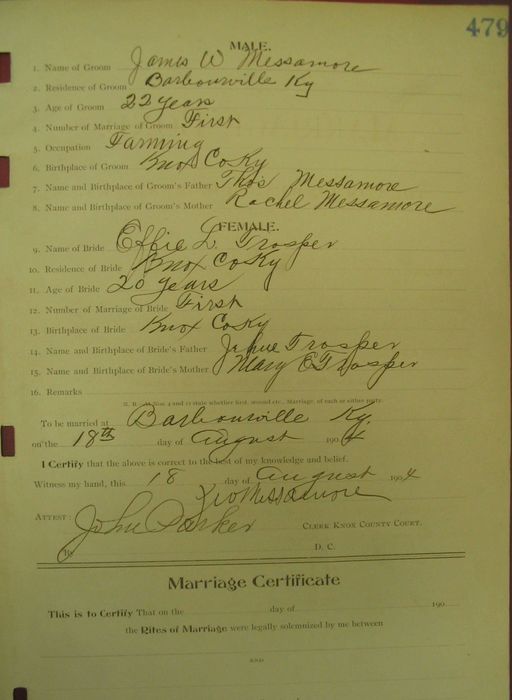 479
MALE.
1. Name of Groom James W Messamore
2. Residence of Groom Barbourville Ky
3. Age of Groom 22 years
4. Number of Marriage of Groom First
5. Occupation Farming
6. Birthplace of Groom Knox Co Ky
7. Name and Birthplace of Groom's Father Thos Messamore
8. Name and Birthplace of Groom's Mother Rachel Messamore
FEMALE.
9. Name of Bride Effie L. Trosper
10. Residence of Bride Knox Co Ky
11. Age of Bride 20 years
12. Number of Marriage of Bride First
13. Birthplace of Bride Knox Co Ky
14. Name and Birthplace of Bride's Father Jehue Trosper
15. Name and Birthplace of Bride's Mother Mary E Trosper
16. Remarks
N. B.—At Nos. 4 and 12 state whether first, second, etc., Marriage, of each or either party.
To be married at Barbourville Ky.
on the 18th day of August 1904
I Certify that the above is correct to the best of my knowledge and belief.
Witness my hand, this 18 day of August 1904
Messamore
ATTEST:
John Parker CLERK KNOX COUNTY COURT.
By D. C.
Marriage Certificate
This is to Certify That on the day of 190
the Rites of Marriage were legally solemnized by me between
AND